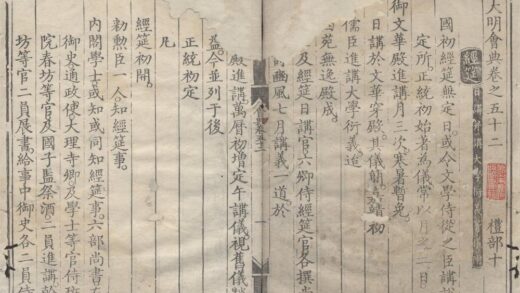 大明會典卷之五十二 禮部十
經筵 日講
國初經筵無定日或令文學侍從之臣講
定所正統初始著為儀常以月之二日
御文華殿進講月三次寒暑暫免
日講於文華穿殿其儀簡嘉靖初
儒臣進講大學衍義
西苑無逸殿成
及經筵日講官六卿侍經筵官各撰
豳風七月講義一道於
殿進講萬曆初增定午講儀視舊儀
益今並列于後
正統初定
凡
經筵初開
勑勲臣一人知經筵事
內閣學士或知或同知經筵事六部尚書
御史通政使大理寺卿及學士等官侍
院春坊等官及國子監祭酒二員進講
坊等官二員展書給事中御史各二員侍